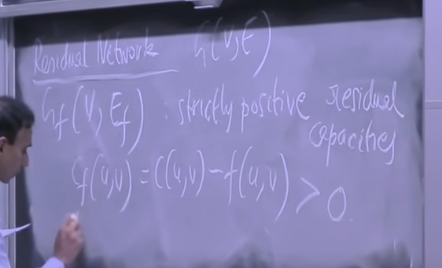 Residual Network G(V,E)
G_f(V, E_f) : strictly positive residual
capacities
C_f(u,v) = C(u,v) - f(u,v) > 0